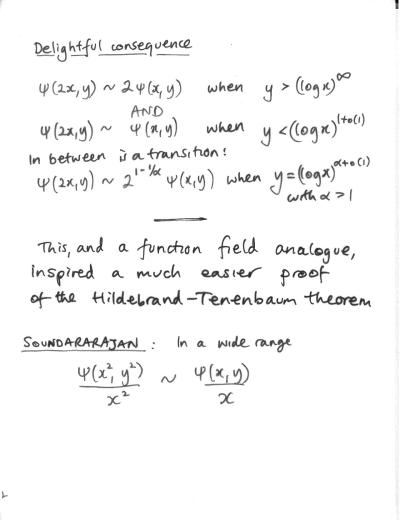 Delightful consequence
Ψ(2x,y) ~ 2Ψ(x,y) when y > (log x)^∞
AND
Ψ(2x,y) ~ Ψ(x,y) when y < (log x)^{1+o(1)}
In between is a transition!
Ψ(2x,y) ~ 2^{1-1/α} Ψ(x,y) when y = (log x)^{α+o(1)}
with α > 1
This, and a function field analogue,
inspired a much easier proof
of the Hildebrand–Tenenbaum theorem
SOUNDARARAJAN : In a wide range
Ψ(x²,y²)/x² ~ Ψ(x,y)/x